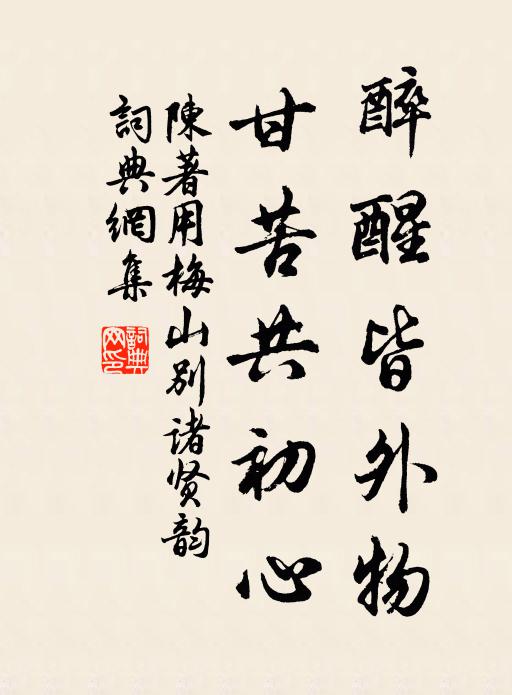 醉醒皆外物
甘苦共初心
陳著用梅山别诸贤韵
詞典網集
詞典网印